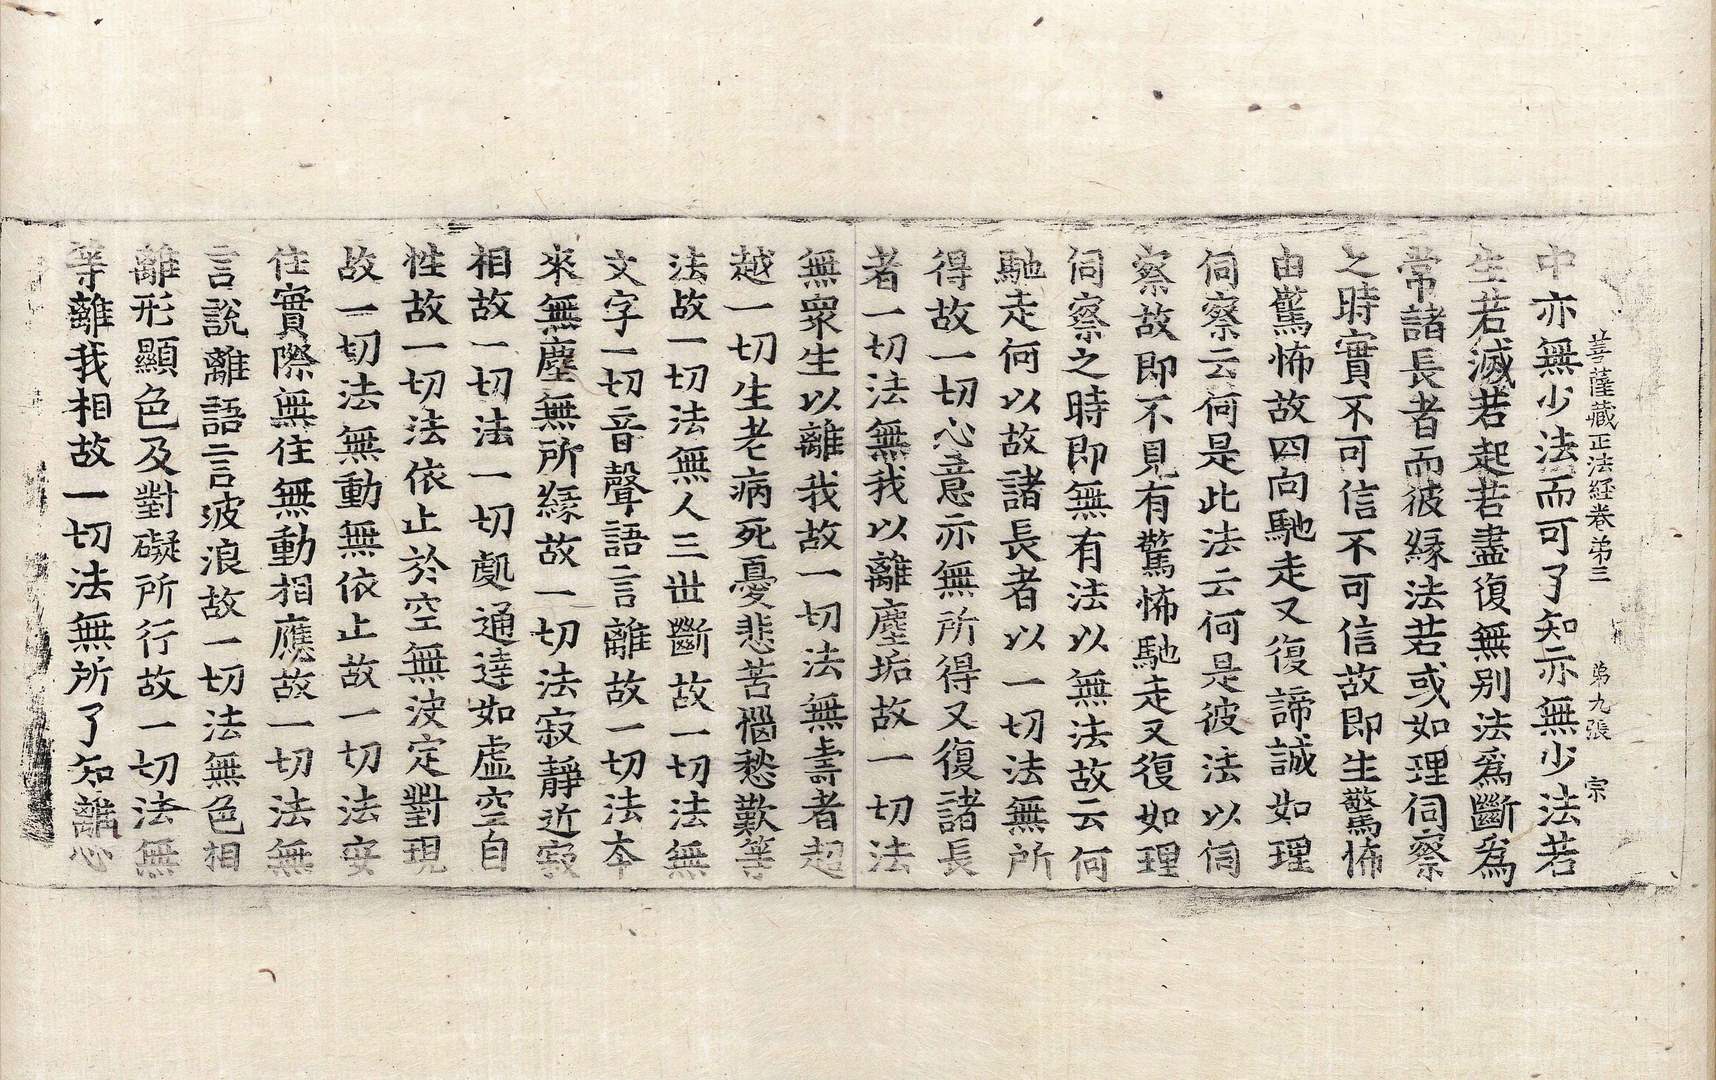 菩薩藏正法經卷第三　第九張　宗
中亦無少法而可了知亦無少法若
生若滅若起若盡復無别法爲斷爲
常諸長者而彼緣法若或如理伺察
之時實不可信不可信故即生驚怖
由驚怖故四向馳走又復諦誠如理
伺察云何是此法云何是彼法以伺
察故即不見有驚怖馳走又復如理
伺察之時即無有法以無法故云何
馳走何以故諸長者以一切法無所
得故一切心意亦無所得又復諸長
者一切法無我以離塵垢故一切法
無衆生以離我故一切法無壽者超
越一切生老病死憂悲苦惱愁歎等
法故一切法無人三世斷故一切法無
文字一切音聲語言離故一切法本
來無塵無所緣故一切法寂靜近寂
相故一切法一切處通達如虛空自
性故一切法依止於空無決定對現
故一切法無動無依止故一切法安
住實際無住無動相應故一切法無
言說離語言波浪故一切法無色相
離形顯色及對礙所行故一切法無
等離我相故一切法無所了知離心